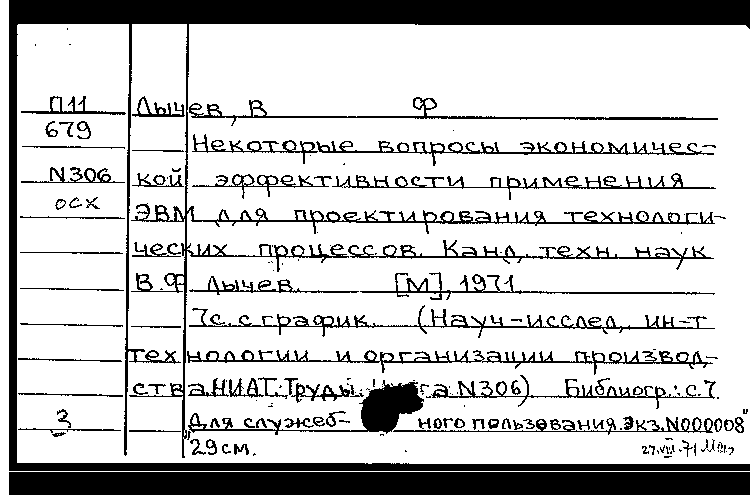 П11 Лычев, В Ф
679 Некоторые вопросы экономичес-
N306 кой эффективности применения
осх ЭВМ для проектирования технологи-
ческих процессов. Канд. техн. наук
В.Ф Лычев. [М], 1971
7с. с график. (Науч-исслед, ин-т
технологии и организации производ-
ства.НИАТ.Труды. N306) Библиогр.: с.7
3 "Для служеб- ного пользования.Экз.N000008"
29см. 27.VIII.71